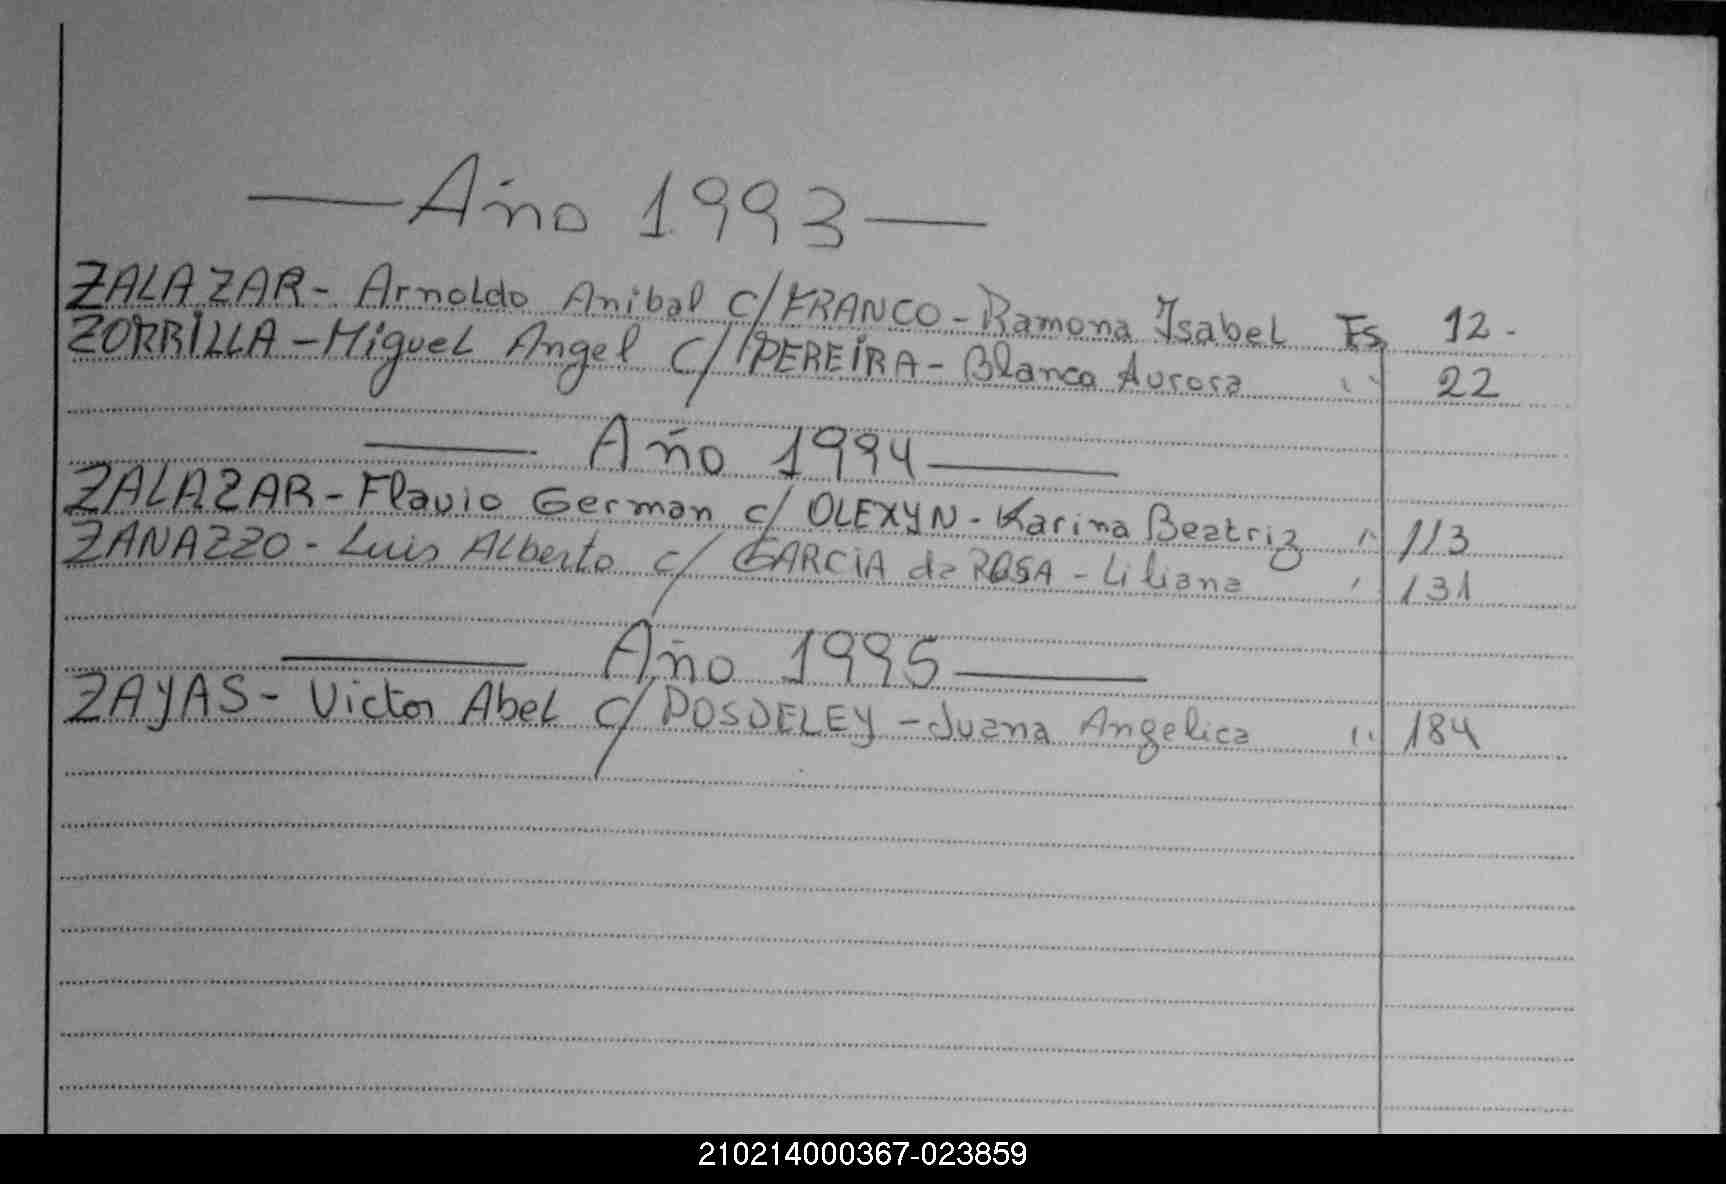 — Año 1993 —
ZALAZAR - Arnoldo Anibal c/ FRANCO - Ramona Isabel Fs 12 -
ZORRILLA - Miguel Angel c/ PEREIRA - Blanca Aurora " 22
— Año 1994 —
ZALAZAR - Flavio German c/ OLEXYN - Karina Beatriz " 113
ZANAZZO - Luis Alberto c/ GARCIA da ROSA - Liliana " 131
— Año 1995 —
ZAYAS - Victor Abel c/ - Juana Angelica " 184
210214000367-023859